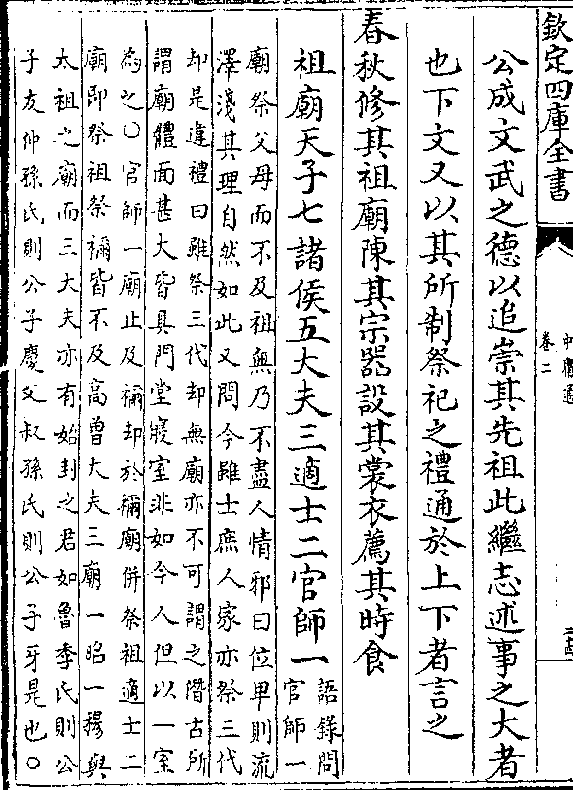 欽定四庫全書
卷二
公成文武之德以追崇其先祖此繼志述事之大者
也下文又以其所制祭祀之禮通於上下者言之
春秋修其祖廟陳其宗器設其裳衣薦其時食
祖廟天子七諸侯五大夫三適士二官師一
語錄問
官師一
廟祭父母而不及祖無乃不盡人情邪曰位卑則流
澤淺其理自然如此又問今雖士庶人家亦祭三代
却是違禮曰雖祭三代却無廟亦不可謂之僭古所
謂廟體面甚大皆具門堂寢室非如今人但以一室
為之○官師一廟止及禰却於禰廟併祭祖適士二
廟即祭祖祭禰皆不及高曾大夫三廟一昭一穆與
太祖之廟而三大夫亦有始封之君如魯季氏則公
子友仲孫氏則公子慶父叔孫氏則公子牙是也○